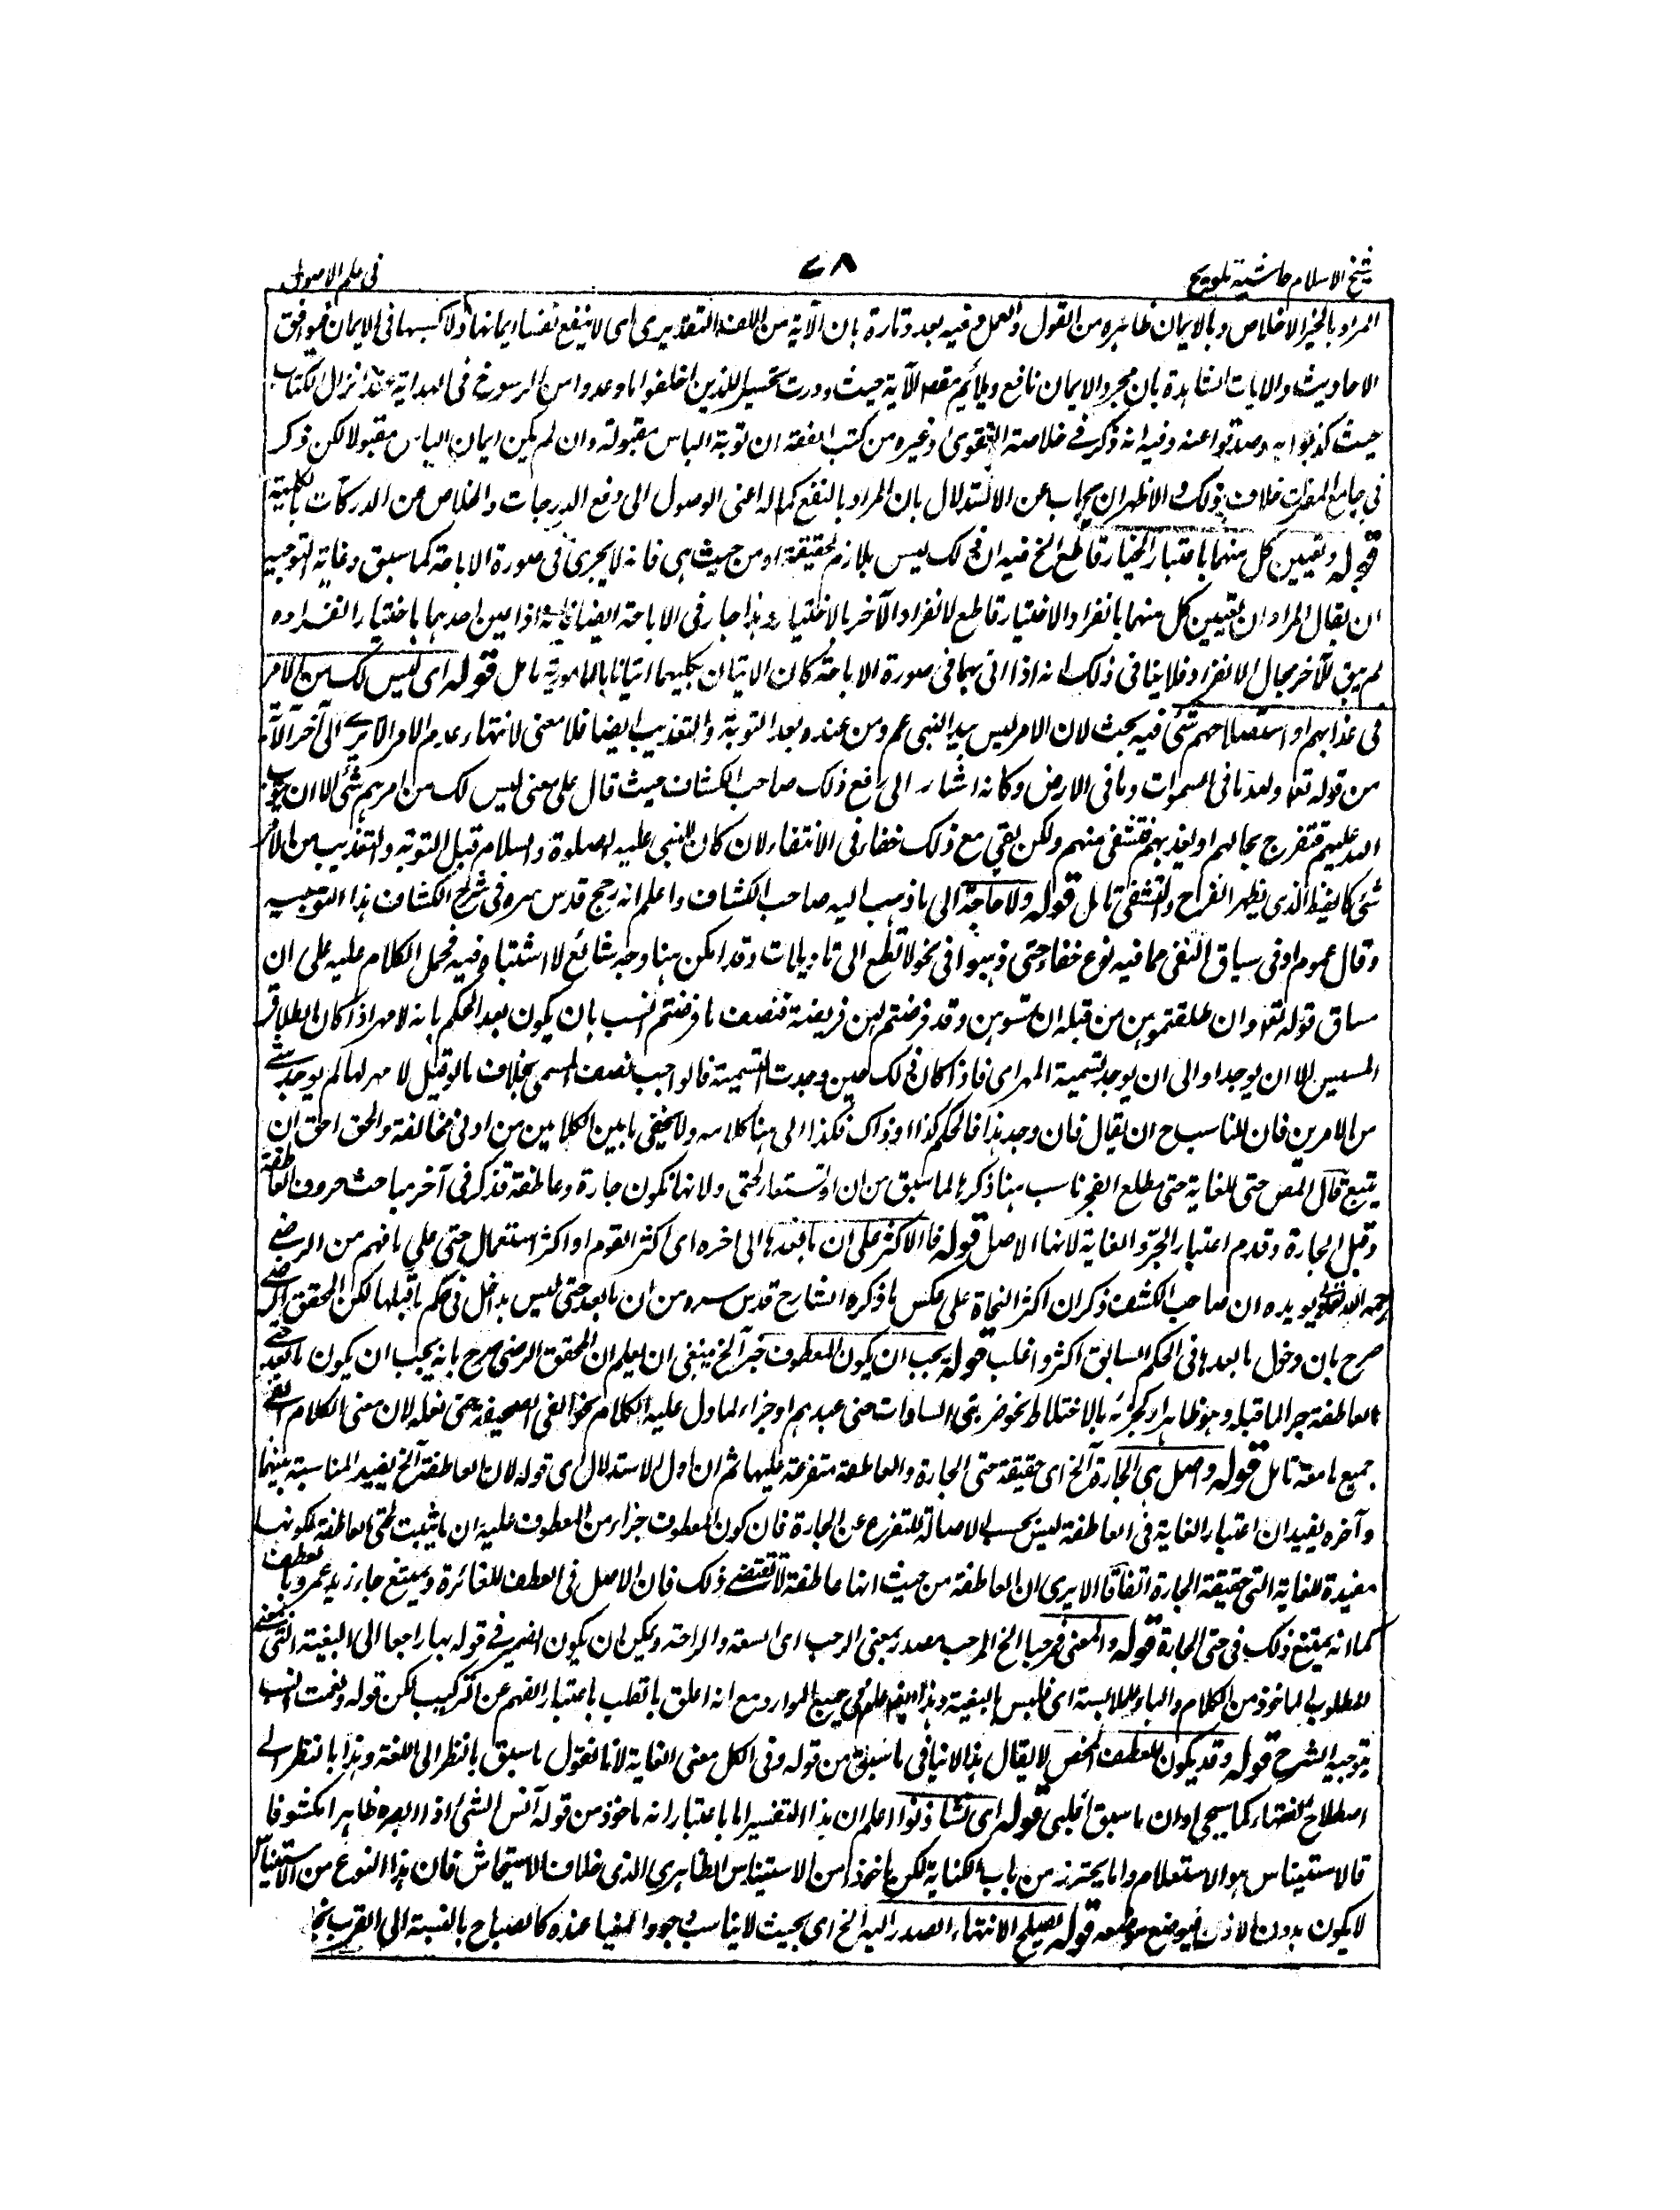 شيخ الاسلام حاشية تلويح
٧٨
فى علم الاصول
المراد بالخير الاخلاص وبالايمان ظاهره من القول والعمل وفيه بعد وتارة بان الآية من اللف التقديرى اى لا ينفع نفسا ايمانها ولا كسبها فى الايمان فيوافق
الاحاديث والايات الشاهدة بان مجرد الايمان نافع ويلائم مقصد الآية حيث وردت تحسيرا للذين اخلفوا ما وعدوا من الرسوخ فى الهداية عند انزال الكتاب
حيث كذبوا به وصدفوا عنه وفيه انه ذكر فى خلاصة الفتوى وغيره من كتب الفقه ان توبة الباس مقبولة وان لم يكن ايمان الباس مقبولا لكن ذكر
فى جامع المضمرات خلاف ذلك والاظهر ان يجاب عن الاستدلال بان المراد بالنفع كماله اعنى الوصول الى رفع الدرجات والخلاص عن الدركات بالكلية
قوله وتعيين كل منهما باعتبار الخيار قاطع الخ فيه ان ذلك ليس بلازم لحقيقة او من حيث هى فانه لا يجرى فى صورة الاباحة كما سبق وغاية التوجيه
ان يقال المراد ان تعيين كل منهما بانفراد الاختيار قاطع لانفراد الآخر بالاختيار وهذا جار فى الاباحة ايضا فانه اذا عين احدهما باختيار انفراده
لم يبق للآخر مجال الانفراد فلا ينافى ذلك انه اذا اتى بهما فى صورة الاباحة كان الاتيان بكليهما اتيانا بالمامور به تامل قوله اى ليس لك من الامر
فى عذابهم او استصلاحهم شئ فيه بحث لان الامر ليس بيد النبى عم ومن عنده وبعد التوبة والتعذيب ايضا فلا معنى لانتهاء عدم الامر الا ترى الى آخر الآية
من قوله تع ولله ما فى السموات وما فى الارض وكانه اشار الى رفع ذلك صاحب الكشاف حيث قال على معنى ليس لك من امرهم شئ الا ان يتوب
الله عليهم فتفرح بحالهم او يعذبهم فتتشفى منهم ولكن بقى مع ذلك خفاء فى الانتفاء لان كان للنبى عليه الصلوة والسلام قبل التوبة والتعذيب من الامر
شئ كالغيظ الذى يظهر الفراح والتشفى تامل قوله ولا حاجة الى ما ذهب اليه صاحب الكشاف واعلم انه رجح قدس سره فى شرح الكشاف هذا التوجيه
وقال عموم او فى سياق النفى مما فيه نوع خفاء حتى ذهبوا فى نحو لا تطع الى تاويلات وقد امكن هنا وجه شائع لا اشتباه فيه فحمل الكلام عليه على ان
مساق قوله تع وان طلقتموهن من قبل ان تمسوهن وقد فرضتم لهن فريضة فنصف ما فرضتم انسب بان يكون بعد الحكم بانه لا مهر اذا كان الطلاق قبل
المسيس الا ان يوجد او الى ان يوجد تسمية المهر اى فاذا كان ذلك حين وجدت التسمية فالواجب نصف المسمى بخلاف ما لو قيل لا مهر لها لم يوجد شئ
من الامرين فان المناسب ح ان يقال فان وجد هذا فالحكم كذا او ذاك فكذا الى هنا كلامه ولا يخفى ما بين الكلامين من ادنى مخالفة والحق احق ان
يتبع قال المص حتى للغاية حتى مطلع الفجر ناسب هنا ذكرها لما سبق من ان او تستعار لحتى ولانها تكون جارة وعاطفة فذكر فى آخر مباحث حروف العاطفة
وقبل الجارة وقدم اعتبار الجر والغاية لانها الاصل قوله فالاكثر على ان ما بعدها الى اخره اى اكثر القوم او اكثر استعمال حتى على ما فهم من الرضى
رحمه الله تعالى يويده ان صاحب الكشف ذكر ان اكثر النحاة على عكس ما ذكره الشارح قدس سره من ان ما بعد حتى ليس بداخل فى حكم ما قبلها لكن المحقق الرضى
صرح بان دخول ما بعدها فى الحكم السابق اكثر واغلب قوله يجب ان يكون المعطوف جزأ الخ ينبغى ان يعلم ان المحقق الرضى صرح بانه يجب ان يكون ما بعد حتى
العاطفة جزأ لما قبله وهو ظاهر او كجزئه بالاختلاط نحو ضربنى السادات حتى عبيدهم او جزاء لما دل عليه الكلام نحو القى الصحيفة حتى نعله لان معنى الكلام القى
جميع ما معه تامل قوله واصل هى الجارة الخ اى حقيقة حتى الجارة والعاطفة متفرعة عليها ثم ان اول الاستدلال اى قوله لان العاطفة الخ يفيد المناسبة بينهما
وآخره يفيد ان اعتبار الغاية فى العاطفة ليس بحسب الاصالة للتفرع عن الجارة فان كون المعطوف جزاء من المعطوف عليه ان ما يثبت لحتى العاطفة لكونها
مفيدة للغاية التى حقيقة الجارة اتفاقا الا يرى ان العاطفة من حيث انها عاطفة لا تقتضى ذلك فان الاصل فى العطف المغائرة ويمتنع جاء زيد وعمرو بالعطف
كما انه يمتنع ذلك فى حتى الجارة قوله والمعنى مرحبا الخ المرحب مصدر بمعنى الرحب اى السعة والراحة ويمكن ان يكون الضمير فى قوله بها راجعا الى البغية التى بمعنى
المطلوب الماخوذ من الكلام والباء للملابسة اى تلبس بالبغية وهذا جميع الموارد مع انه اعلق بالقلب باعتبار الفهم عن التركيب لكن قوله ونعمت انسب
بتوجيه الشرح قوله وقد يكون للعطف المحض لا يقال هذا لا ينافى ما سبق من قوله وفى الكل معنى الغاية لانا نقول ما سبق بالنظر الى اللغة وهذا بالنظر الى
اصطلاح الفقهاء كما سيجى او ان ما سبق اغلبى قوله اى تستاذنوا اعلم ان هذا التفسير اما باعتبار انه ماخوذ من قوله آنس الشئ اذا ابصره ظاهرا مكشوفا
فالاستيناس هو الاستعلام واما من باب الكناية لكن من الاستيناس الظاهرى الذى خلاف الاستيحاش فان هذا النوع من الاستيناس
لا يكون بدون الاذن فيوضع موضعه قوله يصلح الانتهاء الصدر اليه الخ اى بحيث لا يناسب وجود المغيا عنده كالصباح بالنسبة الى الضرب